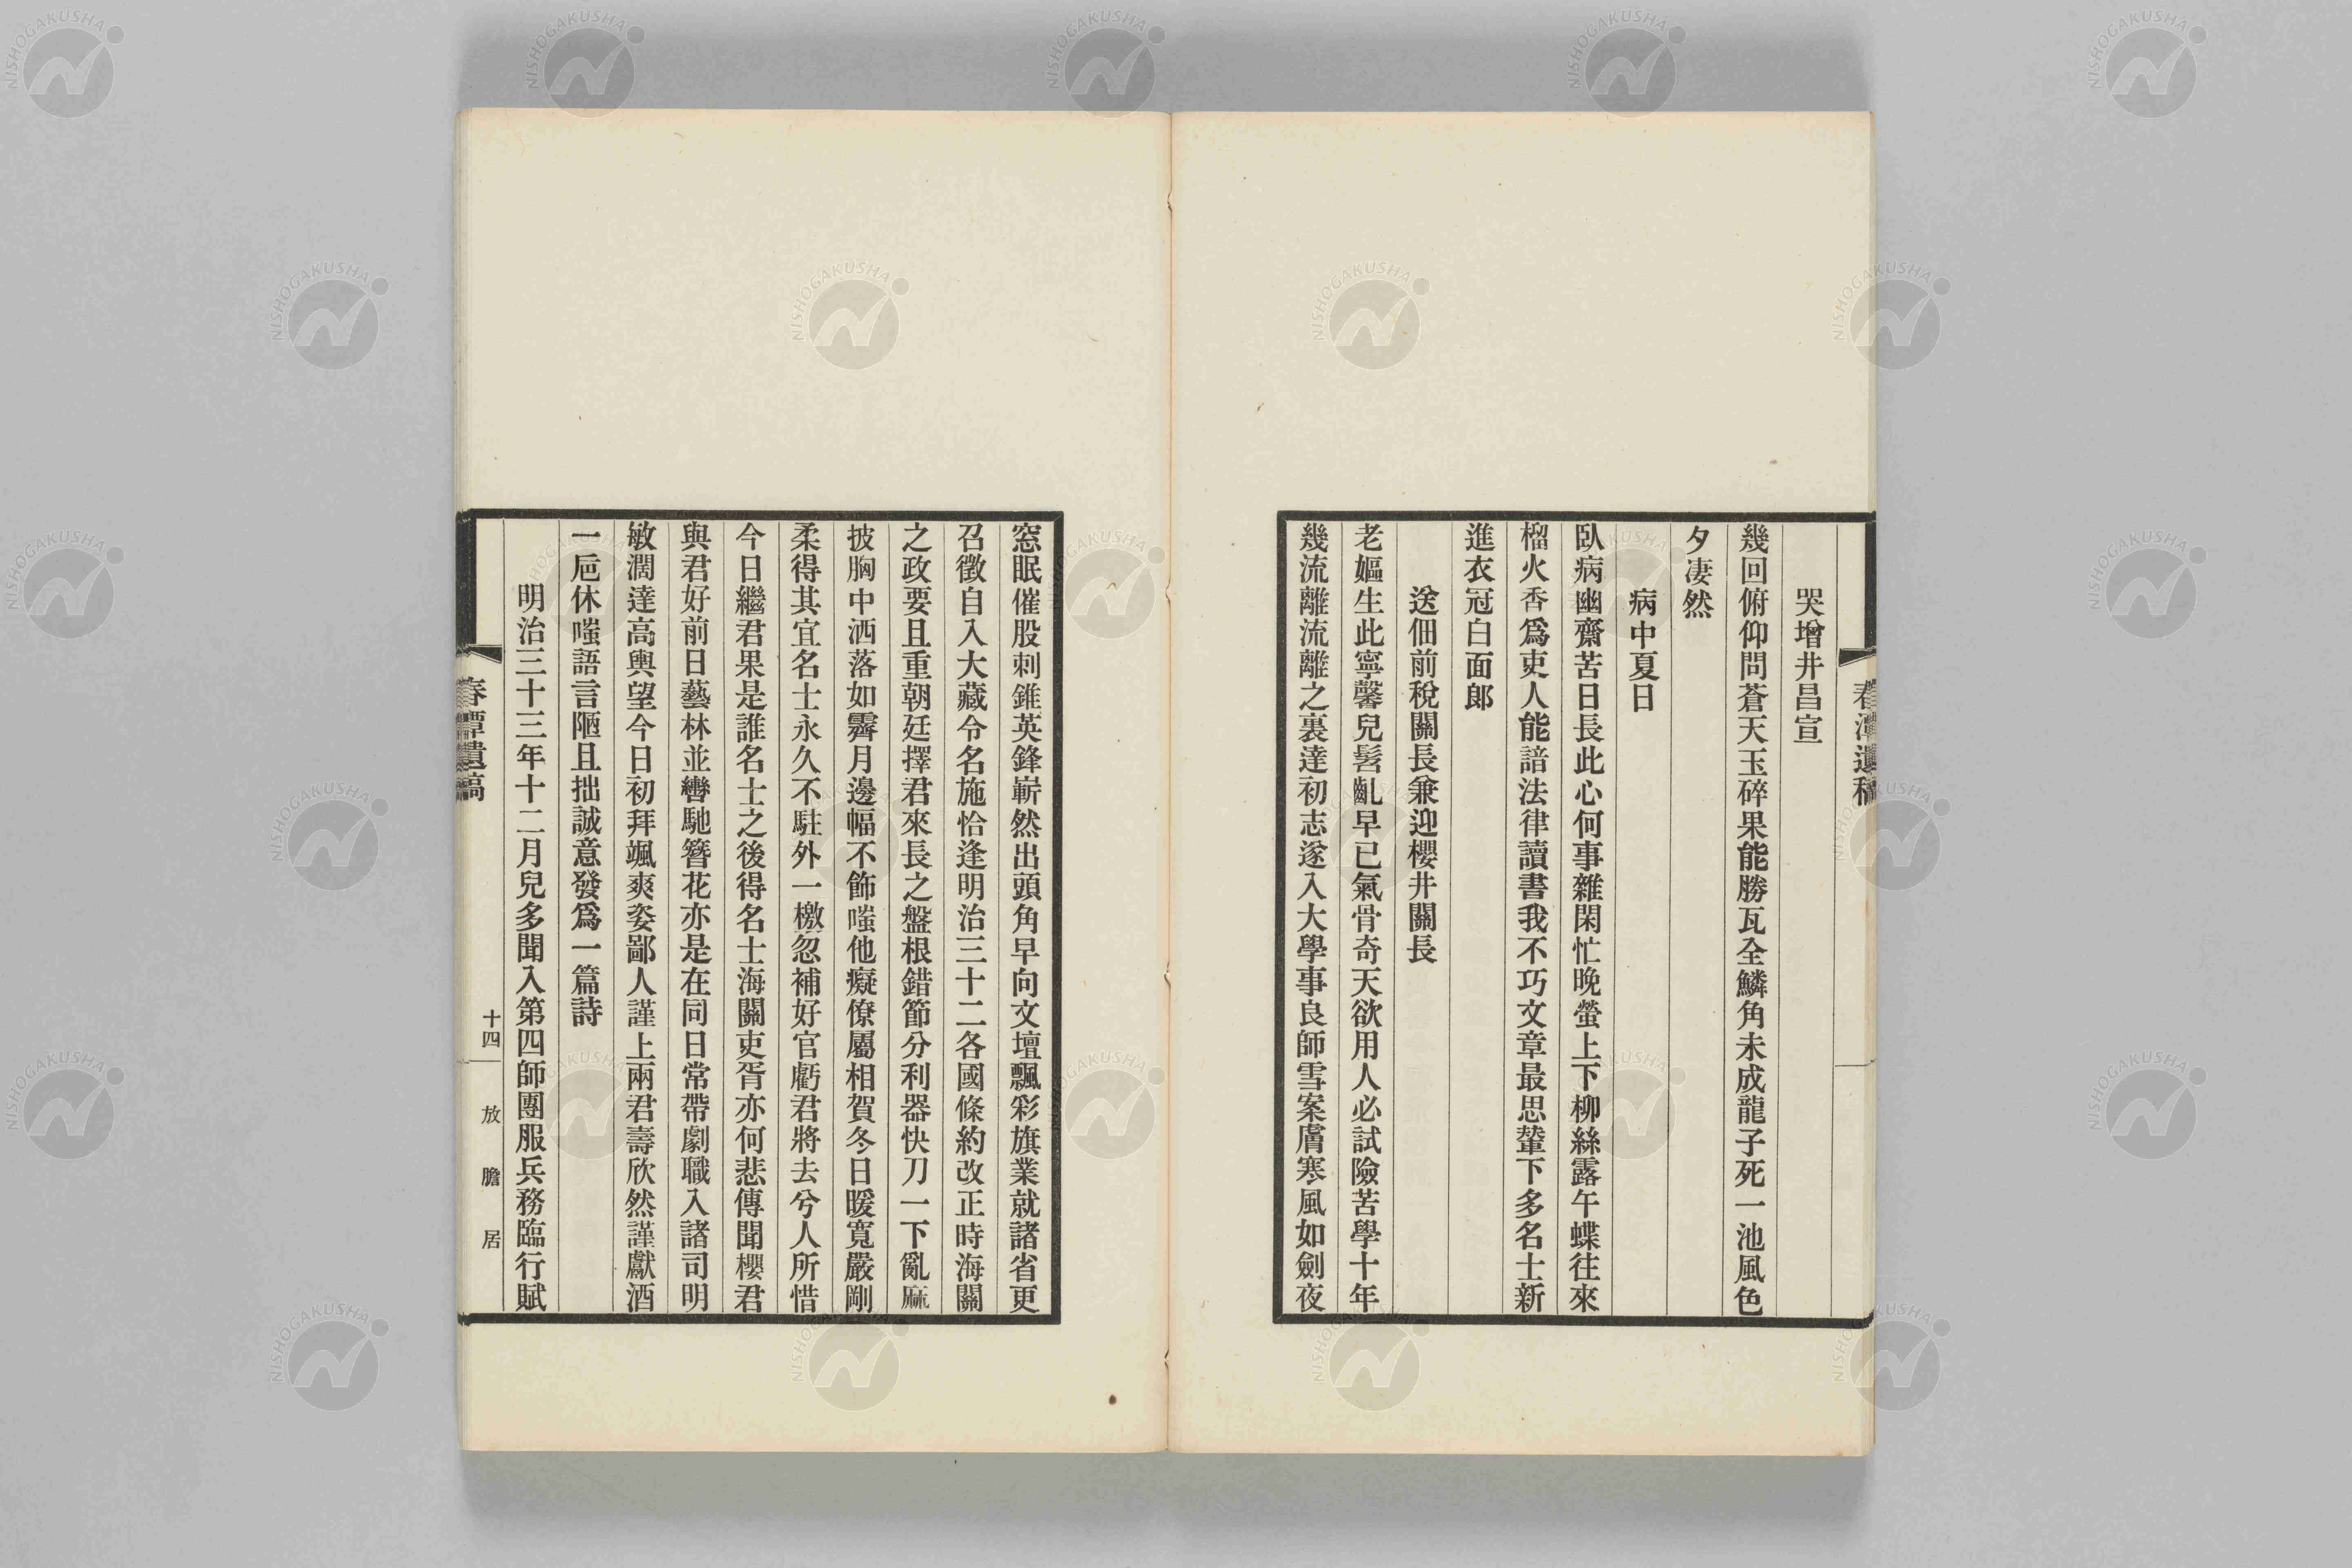 春潭遺稿
哭增井昌宣
幾回俯仰問蒼天玉碎果能勝瓦全鱗角未成龍子死一池風色
夕凄然
病中夏日
臥病幽齋苦日長此心何事雜閑忙晩螢上下柳絲露午蝶往來
榴火香爲吏人能諳法律讀書我不巧文章最思輦下多名士新
進衣冠白面郞
送佃前稅關長兼迎櫻井關長
老嫗生此寧馨兒髫齓早已氣骨奇天欲用人必試險苦學十年
幾流離流離之裏達初志遂入大學事良師雪案膚寒風如劍夜
窓眠催股刺錐英鋒嶄然出頭角早向文壇飄彩旗業就諸省更
召徵自入大藏令名施恰逢明治三十二各國條約改正時海關
之政要且重朝廷擇君來長之盤根錯節分利器快刀一下亂麻
披胸中洒落如霽月邊幅不飾嗤他癡僚屬相賀冬日暖寬嚴剛
柔得其宜名士永久不駐外一檄忽補好官虧君將去兮人所惜
今日繼君果是誰名士之後得名士海關吏胥亦何悲傳聞櫻君
與君好前日藝林並轡馳簪花亦是在同日常帶劇職入諸司明
敏濶達高輿望今日初拜颯爽姿鄙人謹上兩君壽欣然謹獻酒
一巵休嗤語言陋且拙誠意發爲一篇詩
明治三十三年十二月兒多聞入第四師團服兵務臨行賦
春潭遺稿
十四
放膽居
NISHOGAKUSHA